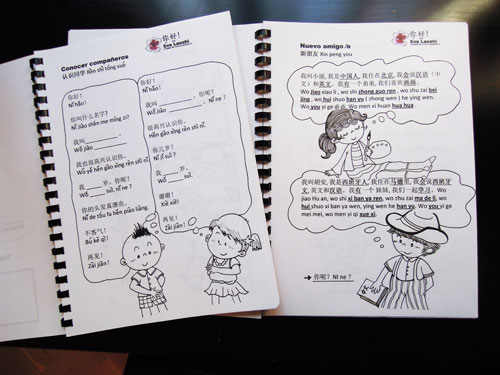 你好!
Eva Laoshi
Conocer compañeros
认识同学 Rèn shí tóng xué
你好!
Nǐ hǎo!
你叫什么名字?
Nǐ jiào shén me míng zì?
我叫
Wǒ jiào
我也很高兴认识你。
Wǒ yě hěn gāo xìng rèn shi nǐ.
我 岁，你呢?
Wǒ suì, nǐ ne?
你的头发真漂亮。
Nǐ de tóu fa hěn piào liang.
不客气!
Bú kè qì!
再见!
Zài jiàn!
你好!
Nǐ hǎo!
我叫 ，你呢?
Wǒ jiào , Nǐ ne ?
很高兴认识你。
Hěn gāo xìng rèn shi nǐ.
你几岁?
Nǐ jǐ suì?
我 岁。
Wǒ suì.
谢谢!
Xiè xiè!
再见!
Zài jiàn!
你好!
Eva Laoshi
Nuevo amigo /a
新朋友 Xin peng you
我叫小丽, 我是中国人, 我住在北京, 我会说汉语 (中
文) 和英文。我有一个弟弟, 我们喜欢画画。
Wo jiao xiao li , wo shi zhong guo ren , wo zhu zai bei
jing , wo hui shuo han yu ( zhong wen ) he ying wen.
Wo you yi ge di di. Wo men xi huan hua hua .
我叫胡安, 我是西班牙人, 我住在马德里, 我会说西班牙
文, 英文和汉语。我有一个妹妹, 我们一起学习。
Wo jiao Hu an, wo shi xi ban ya ren, wo zhu zai ma de li, wo
hui shuo xi ban ya wen, ying wen he han yu. Wo you yi ge
mei mei, wo men yi qi xue xi.
→ 你呢? Ni ne ?